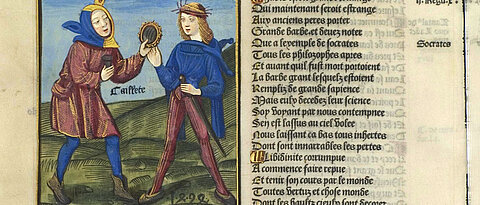 Caillete
Qui maintenant seroit estrange
Auy anciens peres porter
Grande barbe et
Que a lexemple de socrates
Socrates
Tous les philosophes apres
Et auant quil fust mort portoient
La barbe grant lesquelz estoient
Rempliz de grande sapience
Mais leur science
Soy voyant par nous contempnee
Sen est lassus au ciel volee
Nous laissant ca bas tous inhertes
Dont sont innarrables les pertes
Libidinite corrumpue
A commence faire repue
Et tenir son cours par le monde
Toutes vertuz et chose monde
Dont